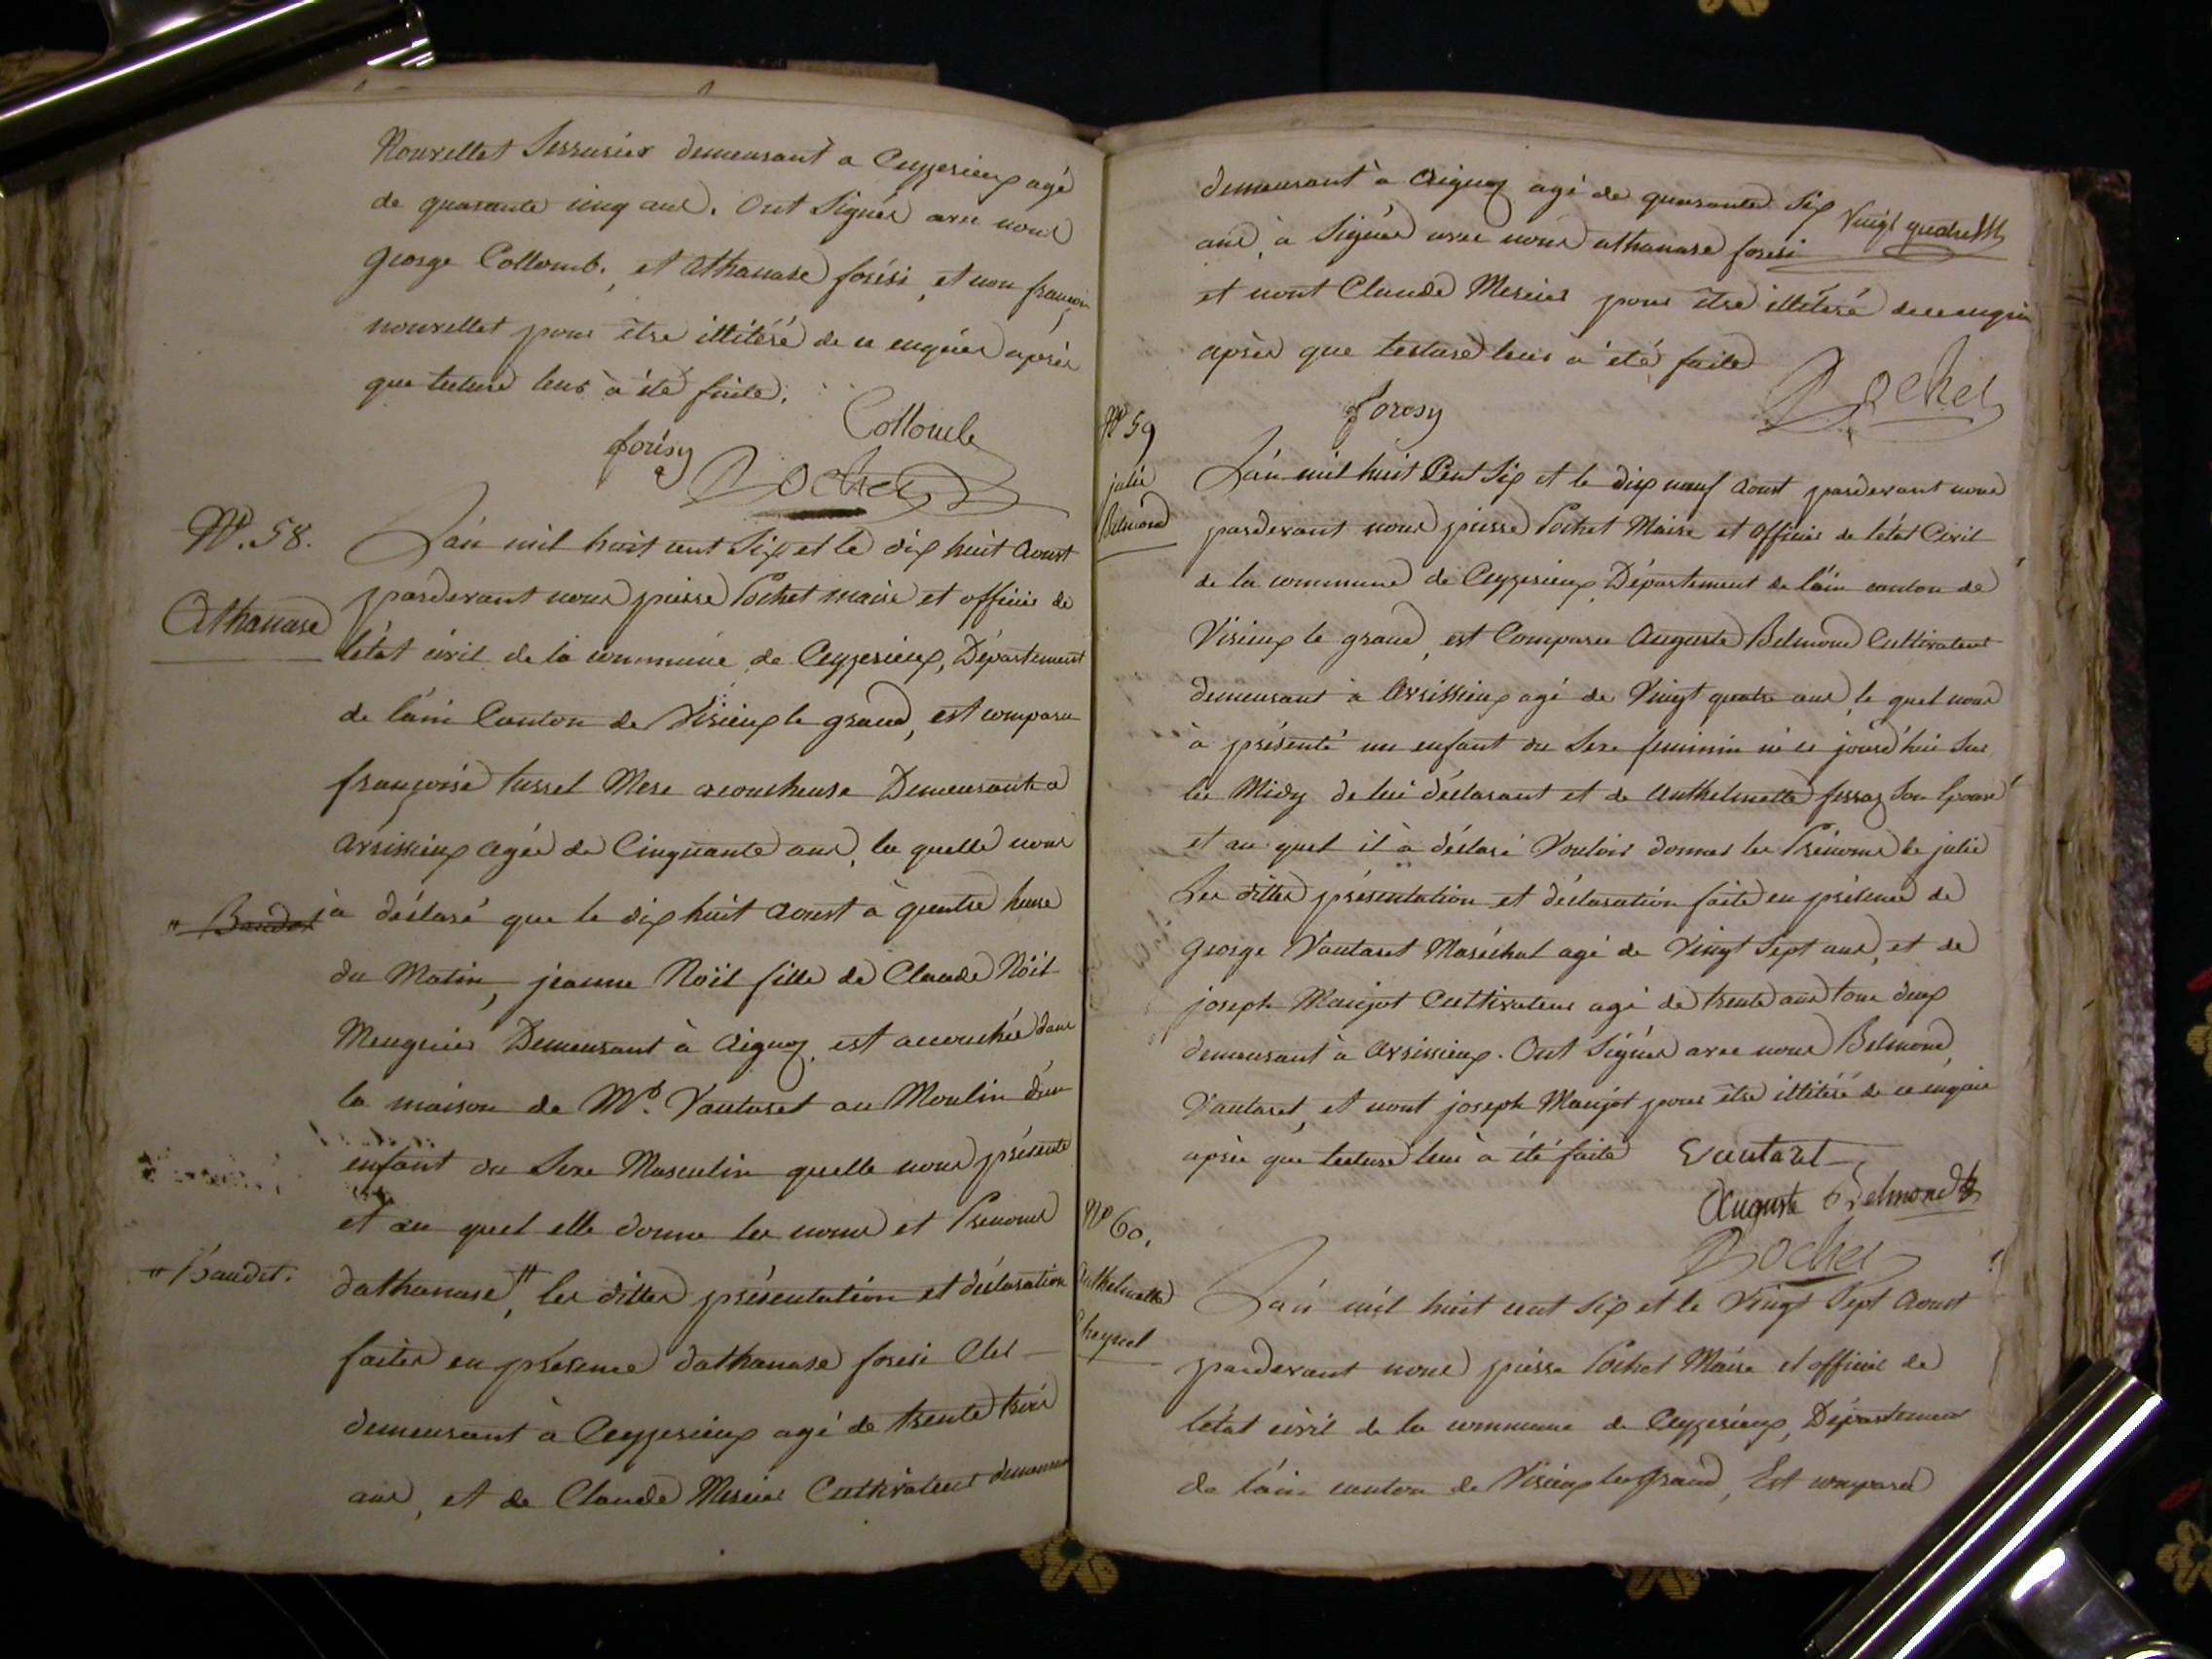 Nourellet Serrurier demeurant a Ceyzerieux agé
de quarante cinq ans. Ont Signés avec nous
george Collomb, et athanase forési, et non françois
nourellet pour être illitéré de ce enquis après
que lecture leur à été faite.
Collomb
forésy
Pochet
N°. 58.
Athanase
L'an mil huit cent Six et le dix huit aoust
pardevant nous pierre Pochet maire et officier de
létat civil de la commune de Ceyzerieux, Département
de l'ain Canton de Virieux le grand, est comparu
françoise tussel Mere acoucheuse Demeurante a
arsissieux agée de Cinquante ans, la quelle nous
" Baudet
à déclaré que le dix huit aoust à quatre heure
du Matin, jeanne Noël fille de Claude Noël
Meugnier Demeurant à aignoz, est accouchée dans
la maison de Mr. Vautaret au Moulin d'un
enfant du Sexe Masculin quelle nous présente
et au quel elle donne les noms et Prenoms
" Baudet.
dathanase ", les dittes présentation et déclaration
faites en présence dathanase forési Clerc
demeurant à Ceyzerieux agé de trente trois
ans, et de Claude Mercier Cultivateur demeurant
demeurant à aignoz agé de quarante Six
ans, à Signés avec nous athanase forési
Vingt quatre
et nont Claude Mercier pour être illitéré de ce enquis
après que lecture leurs a été faite
Pochet
foresy
N° 59
julie
Belmond
L'an mil huit Cent Six et le dix neuf aoust pardevant nous
pardevant nous pierre Pochet Maire et Officier de létat Civil
de la commune de Ceyzerieux, Département de l'ain canton de
Virieux le grand, est Comparu Auguste Belmond Cultivateur
demeurant à Arsissieux agé de Vingt quatre ans, le quel nous
à présenté un enfant du Sexe feminin né ce jourd'hui Sur
les Midy de lui déclarant et de Anthelmette fessaz Son Epouse
et au quel il à déclaré Vouloir donner les Prénoms de julie
Les dittes présentation et déclaration faite en présence de
george Vautaret Maréchal agé de Vingt Sept ans, et de
joseph Maujot Cultivateur agé de trente ans tous deux
demeurant à Arsissieux. Ont Signés avec nous Belmond,
Vautaret, et nont joseph Maujot pour être illitéré de ce enquis
après que lecture leur à été faite
Vautaret
Auguste Belmond
Pochet
N° 60.
Anthelmette
Cheynel
L'an mil huit cent Six et le Vingt Sept aoust
pardevant nous pierre Pochet Maire et officier de
létat civil de la commune de Ceyzerieux, Département
de l'ain canton de Virieux le grand, Est comparu